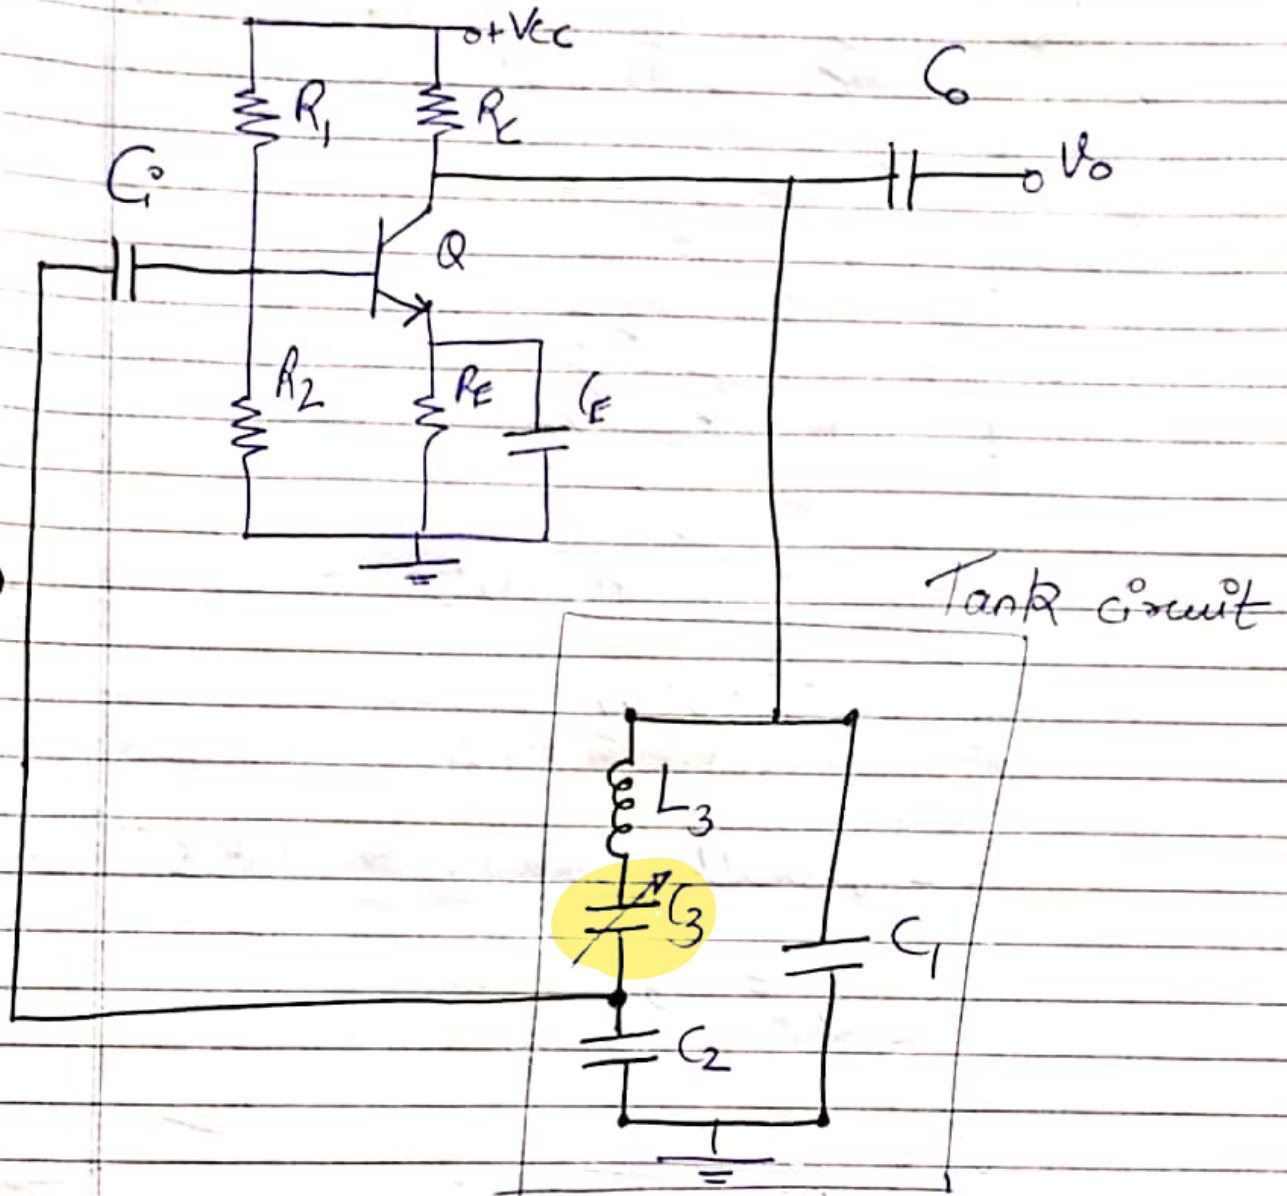 +Vcc
R1
Rc
Co
Ci
Vo
Q
R2
RE
CE
Tank circuit
L3
C3
C1
C2